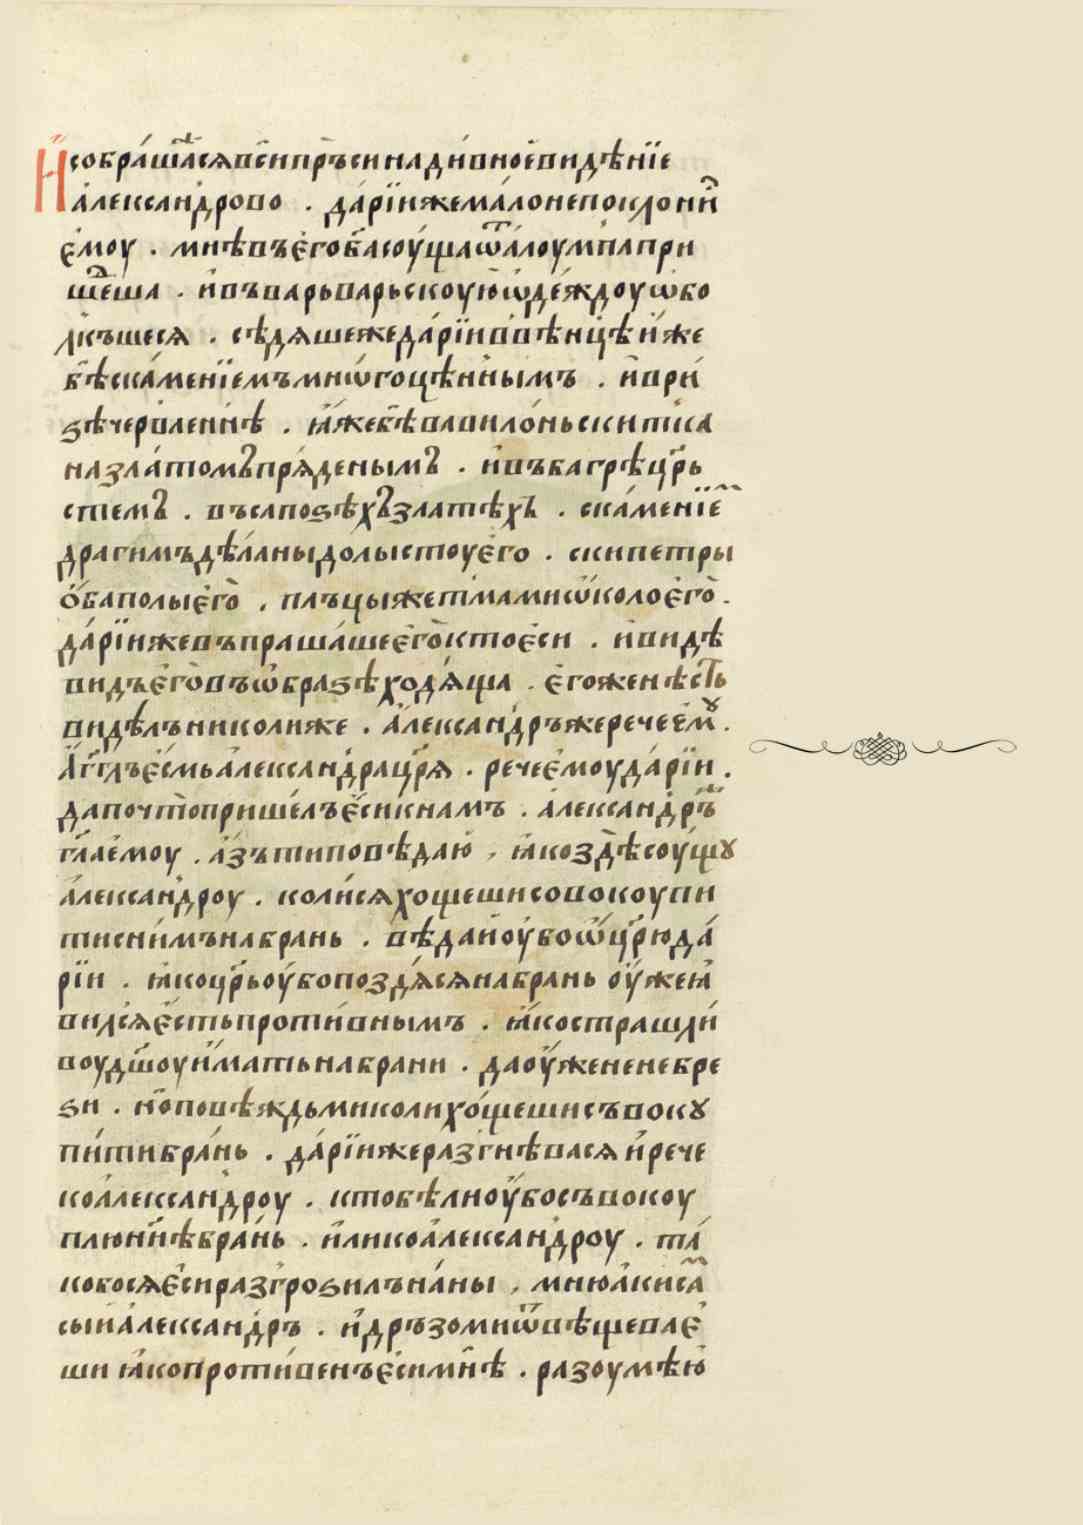 И собра́шася вси прьси на ди́вное видѣнїе
а́лександрово . да́рїи же ма́ло не поклони
ему . мнѣвъ его ба соу́ща ѿ а́ла оумна при
шеша . и въ варьварьскоую ѡде́ждоу ѡбо
лкъшеся . сѣдяше же да́рїи в вѣнцѣ и́же
бѣ с ка́менїемъ мнѡгоцѣннымъ . и в ри́
ѕѣ червленнѣ . ꙗже бѣ вавило́ньски тка
на зла́томъ пря́денымъ . и въ багрѣ црь
стемъ . въ сапоѕѣхъ златѣхъ . с ка́менїе
драгимъ дѣ́ланы до лыстоу его . скипетры
ѻба полы его . плъцы же тмами ѡколо его .
да́рїи же въпраша́ше его кто еси . и видѣ
видъ его въ ѡбраѕѣ ходя́ща . его же нѣсть
видѣлъ николиже . а́лександръ же рече емꙋ .
а́гглъ е́смь а́лександра цр҃я . рече емоу да́рїи .
да почто прише́лъ еси к намъ . а́лександръ
гл҃а емоу . а́зъ ти повѣдаю , ꙗко здѣ соу́щꙋ
а́лександроу . коли ся хощеши совокоупи
ти с ни́мъ на брань . вѣдаи оу́бо ѿ цр҃ю да́
рїи . ꙗко цр҃ь оу́бо поздя́ся на брань оу́же ꙗ
вился есть проти́внымъ . ꙗко страшли́
воу дш҃оу и́мать на брани . да оу́же не небре
ѕи . но повѣждь ми коли хо́щеши съвокꙋ
пи́ти бра́нь . да́рїи же разгнѣвася и рече
ко а́лександроу . к тобѣ ли оу́бо съвокоу
плю ннѣ бра́нь . и́ли ко а́лександроу . та́
ко бо ся еси разгроѕилъ на́ны , мню а́ки са
сыи а́лександръ . и дръзоми ѿвѣщевае
ши ꙗко проти́венъ еси мнѣ . разоумѣю